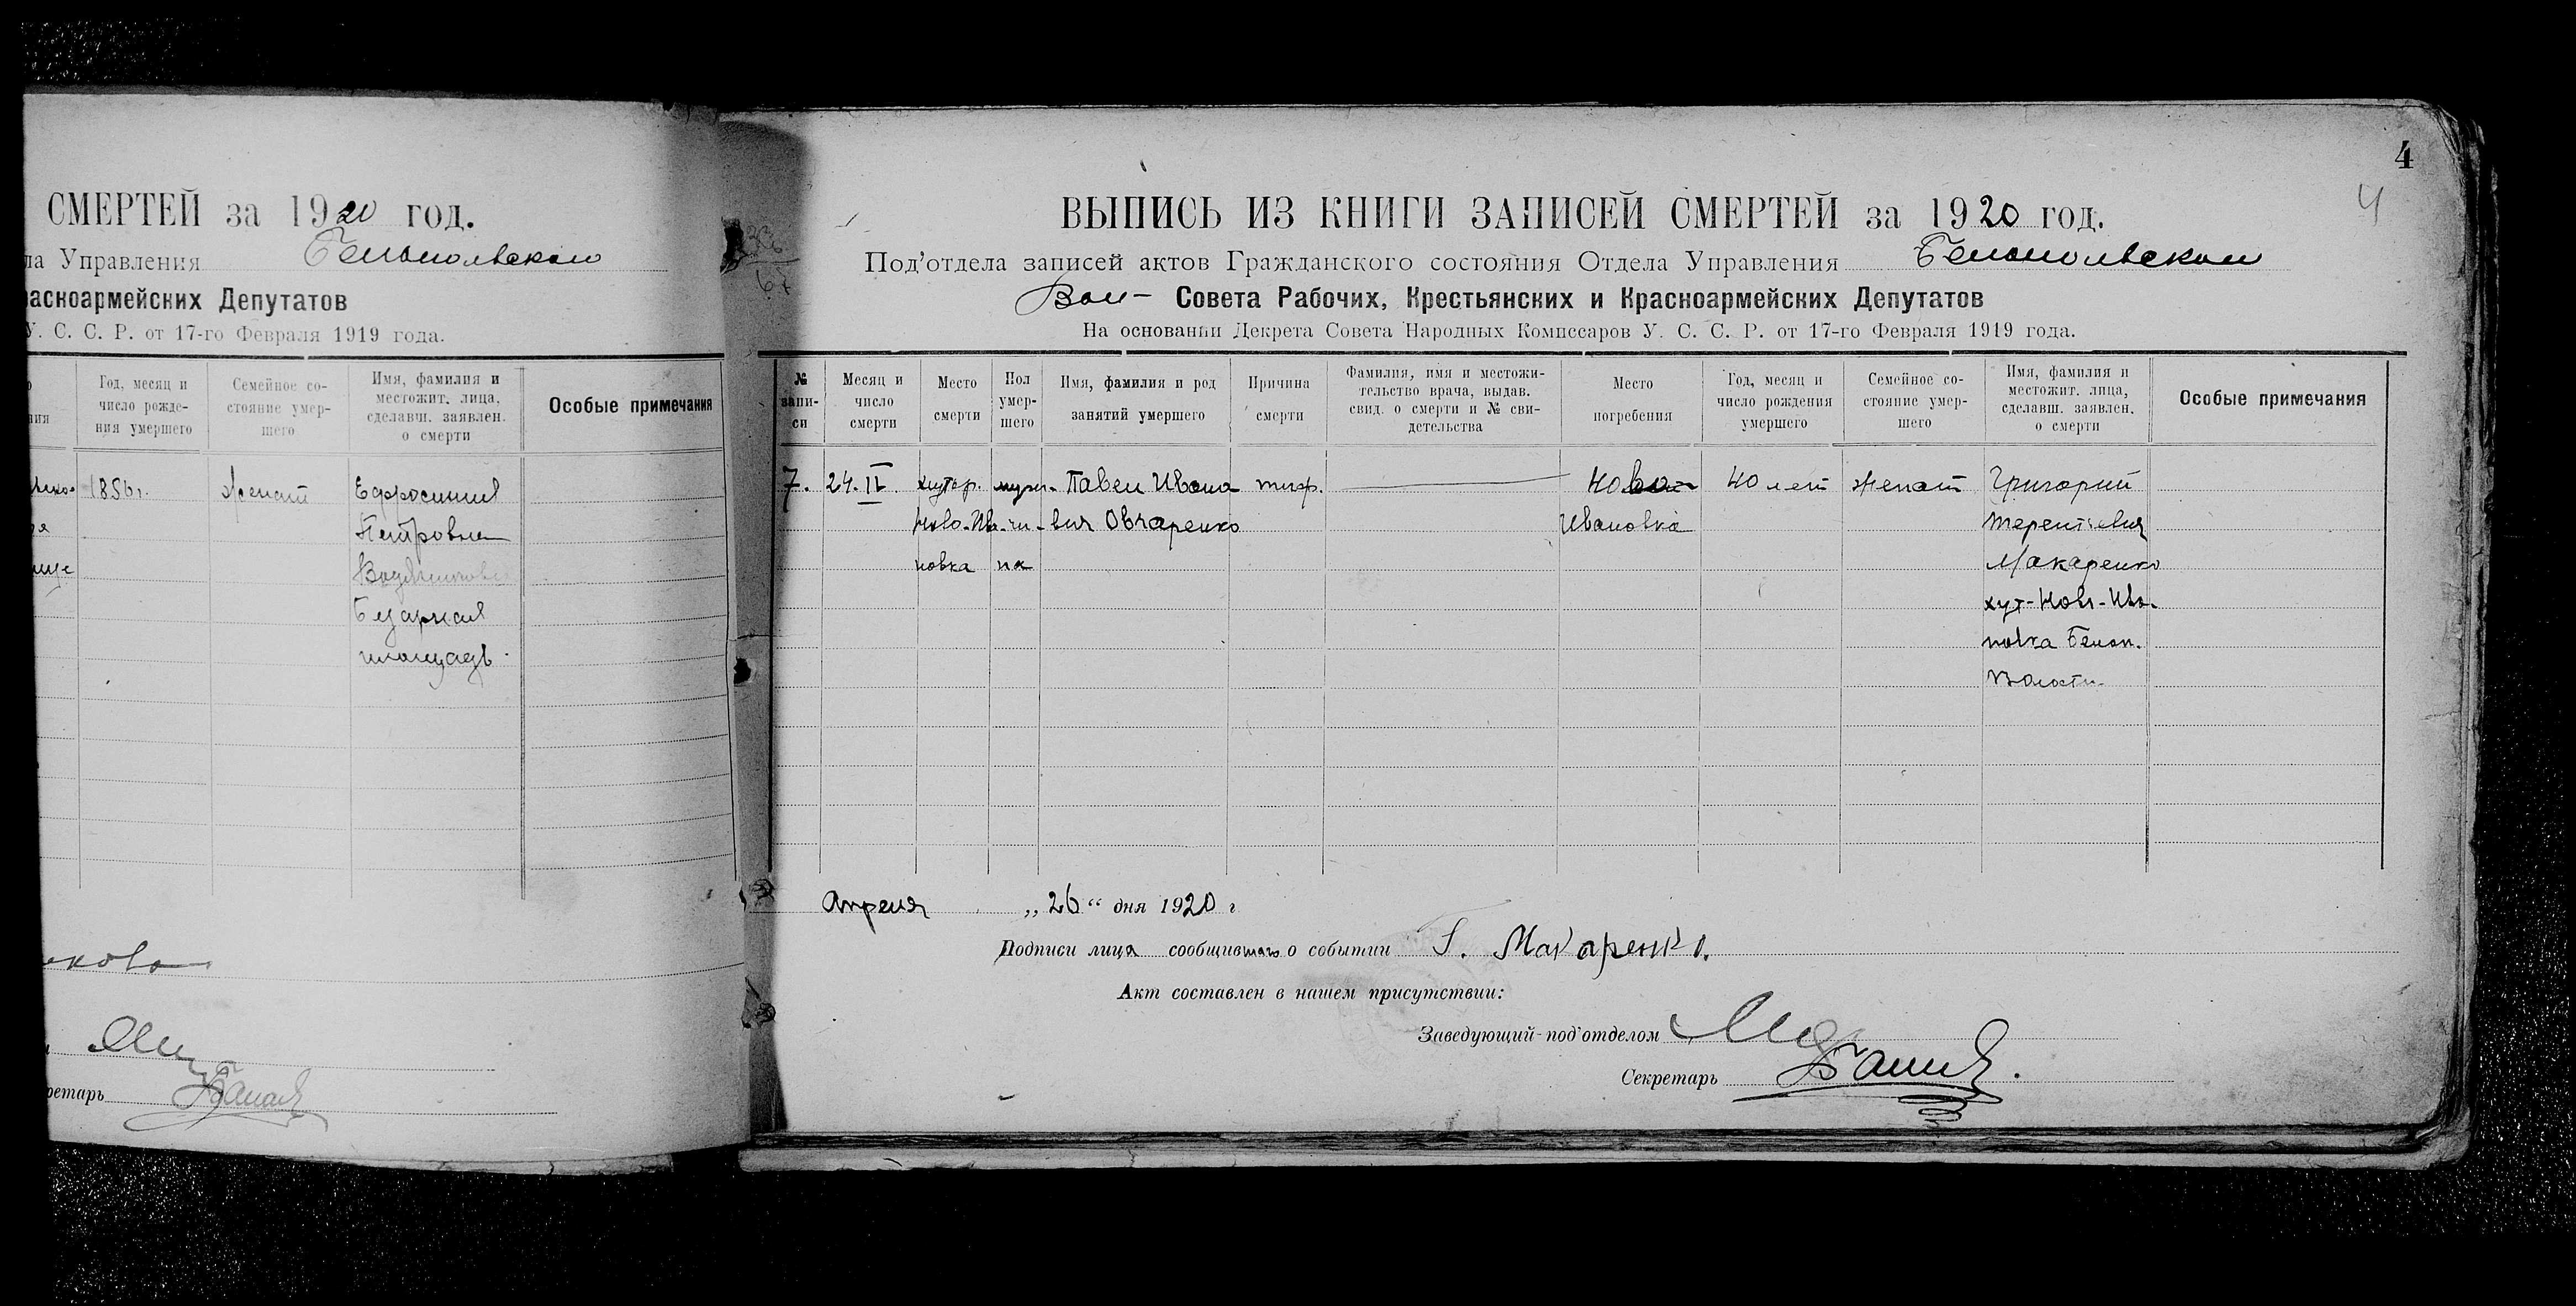 СМЕРТЕЙ за 1920 год.
ла Управления Белопольского
расноармейских Депутатов
У. С. С. Р. от 17-го Февраля 1919 года.
Год, месяц и
число рожде-
ния умершего
Семейное со-
стояние умер-
шего
Имя, фамилия и
местожит. лица,
сделавш. заявлен.
о смерти
Особые примечания
1856г. женат Ефросиния
Петровна
Базарная
площадь
кова
ретарь
4
4
ВЫПИСЬ ИЗ КНИГИ ЗАПИСЕЙ СМЕРТЕЙ за 1920 год.
Под'отдела записей актов Гражданского состояния Отдела Управления Белопольского
Вол- Совета Рабочих, Крестьянских и Красноармейских Депутатов
На основании Декрета Совета Народных Комиссаров У. С. С. Р. от 17-го Февраля 1919 года.
№
запи-
си
Месяц и
число
смерти
Место
смерти
Пол
умер-
шего
Имя, фамилия и род
занятий умершего
Причина
смерти
Фамилия, имя и местожи-
тельство врача, выдав.
свид. о смерти и № сви-
детельства
Место
погребения
Год, месяц и
число рождения
умершего
Семейное со-
стояние умер-
шего
Имя, фамилия и
местожит. лица,
сделавш. заявлен.
о смерти
Особые примечания
7. 24.IV. хутор. муж- Павел Ивано тиф. Новая 40 лет женат Григорий
Ново-Ива- чи- вич Овчаренко Ивановка Терентьевич
новка на Макаренко
хут-Ново-Ива-
новка Белоп.
Волости
Апреля „26“ дня 1920 г
Подписи лица сообщившаго о событии Г. Макаренко.
Акт составлен в нашем присутствии:
Заведующий-под'отделом
Секретарь